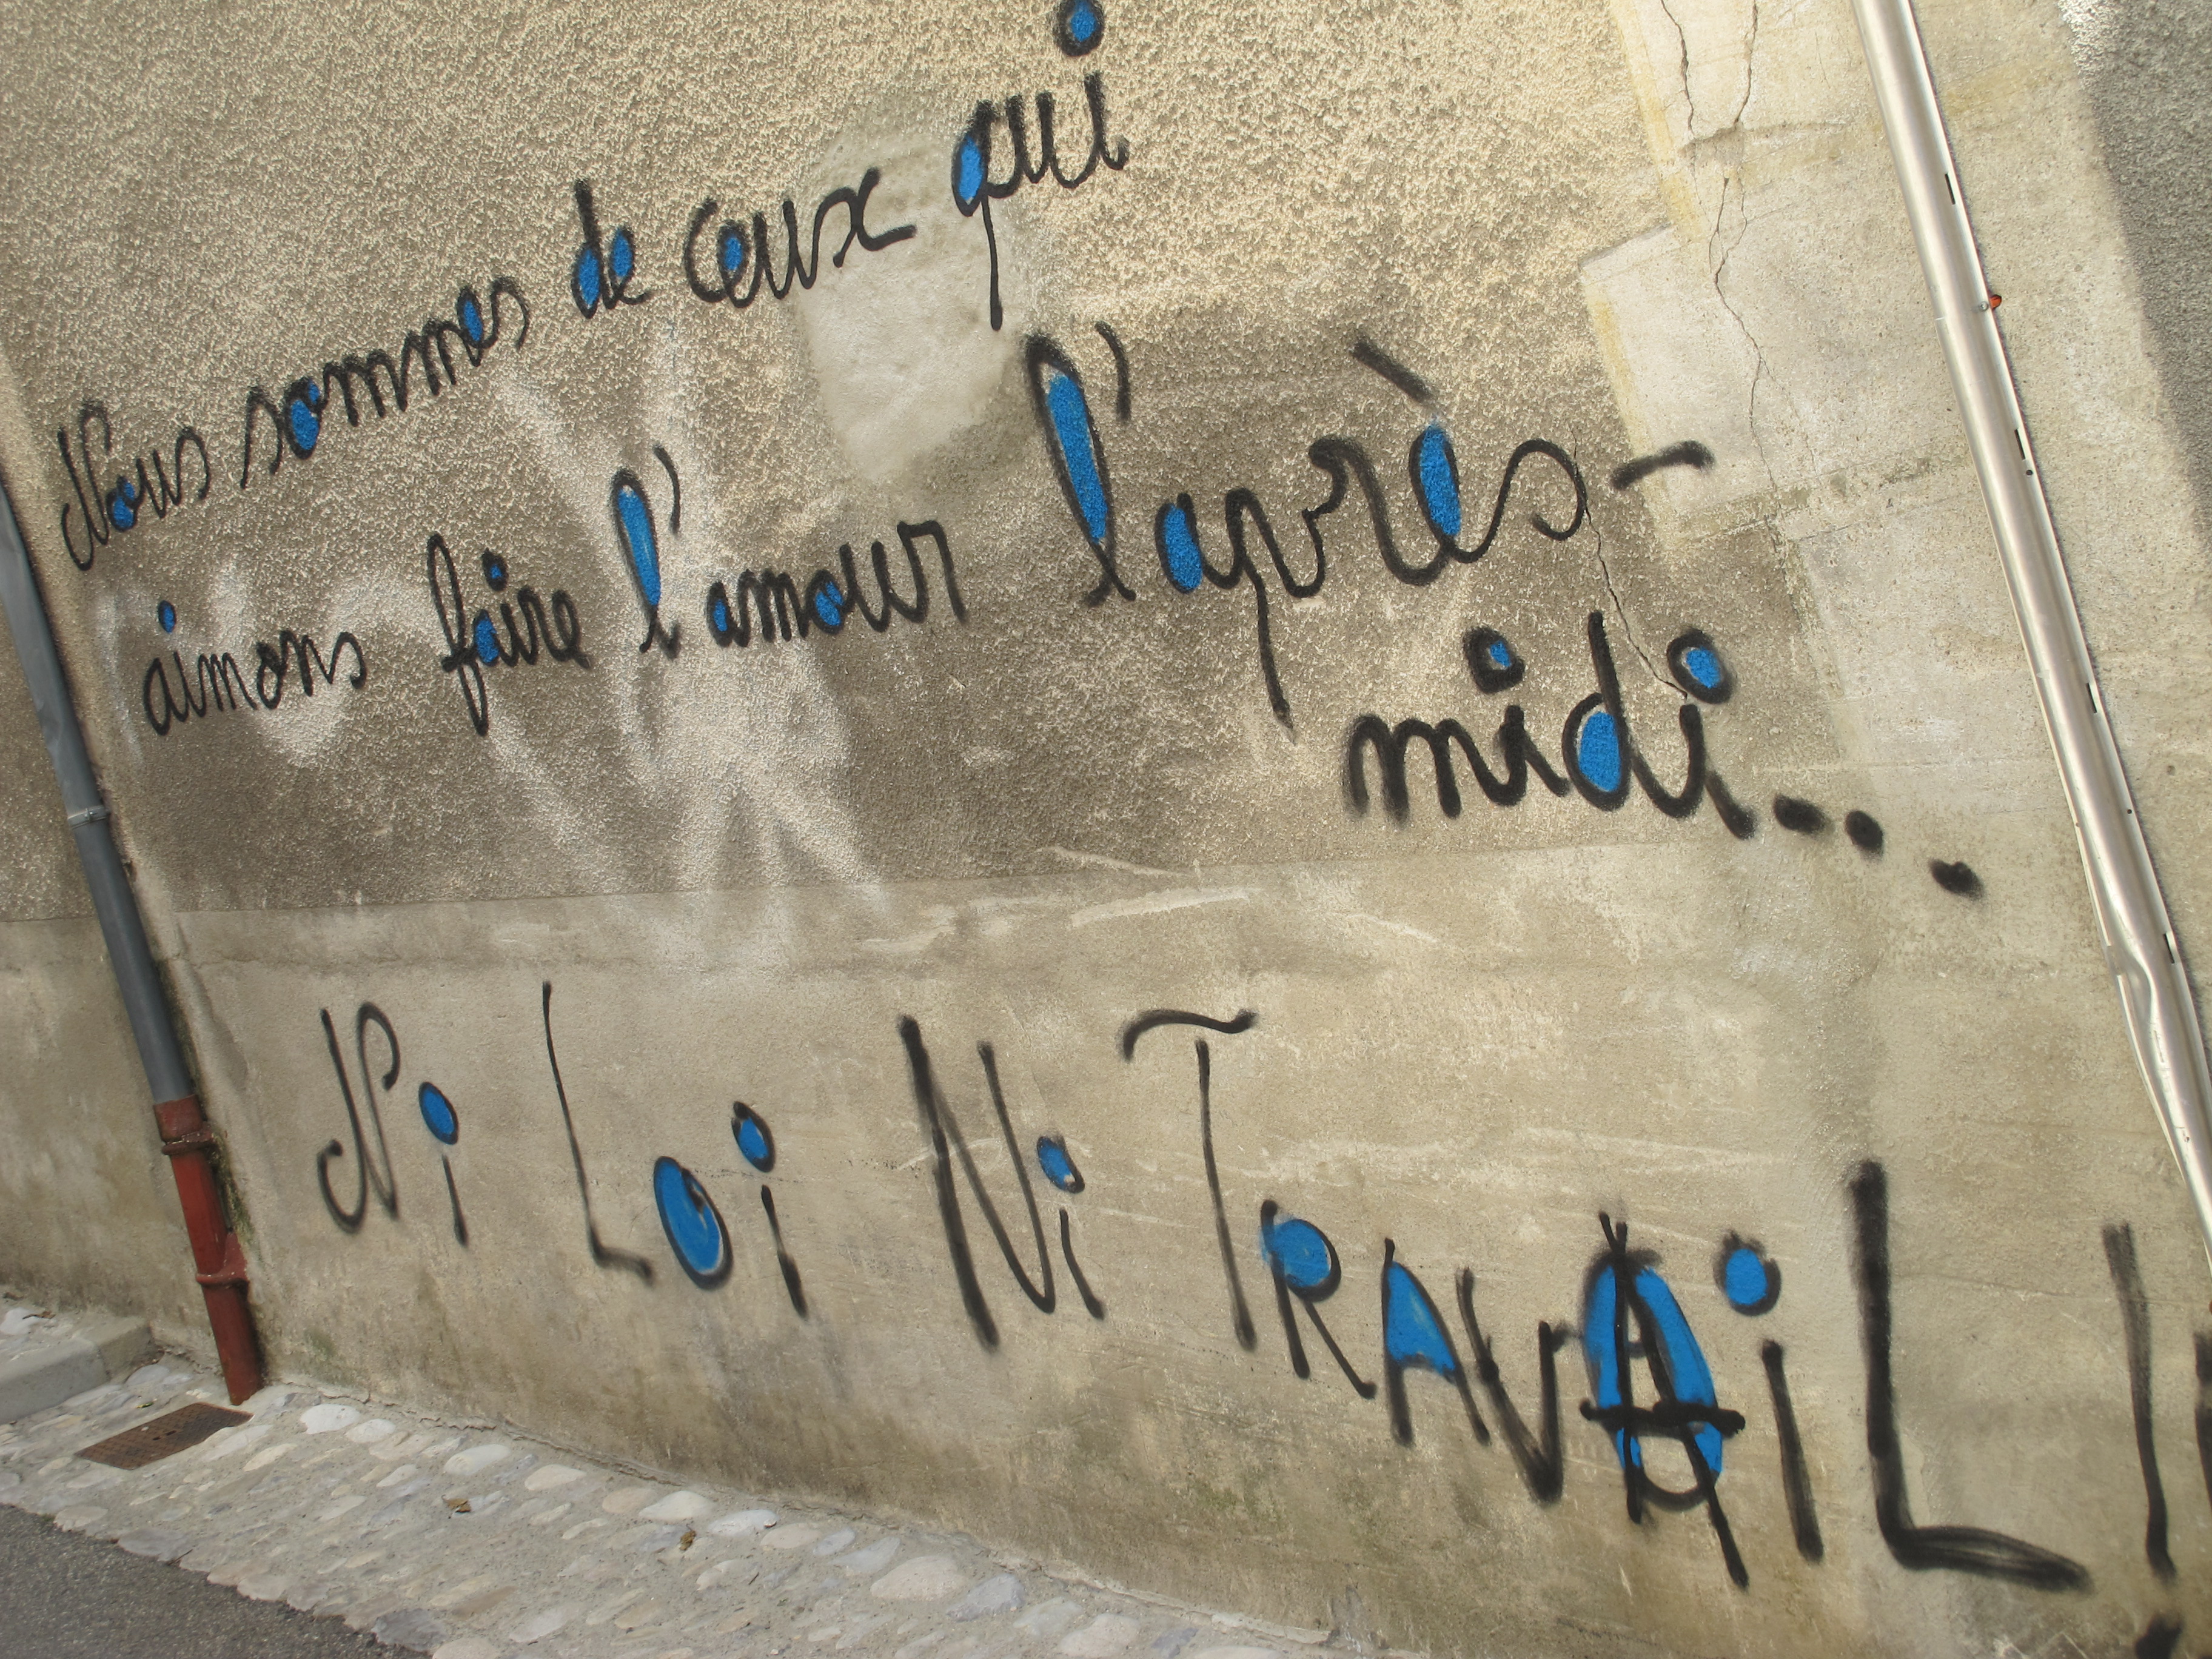 Nous sommes de ceux qui
aimons faire l'amour l'après-
midi...
Ni Loi Ni TRAVAiL !